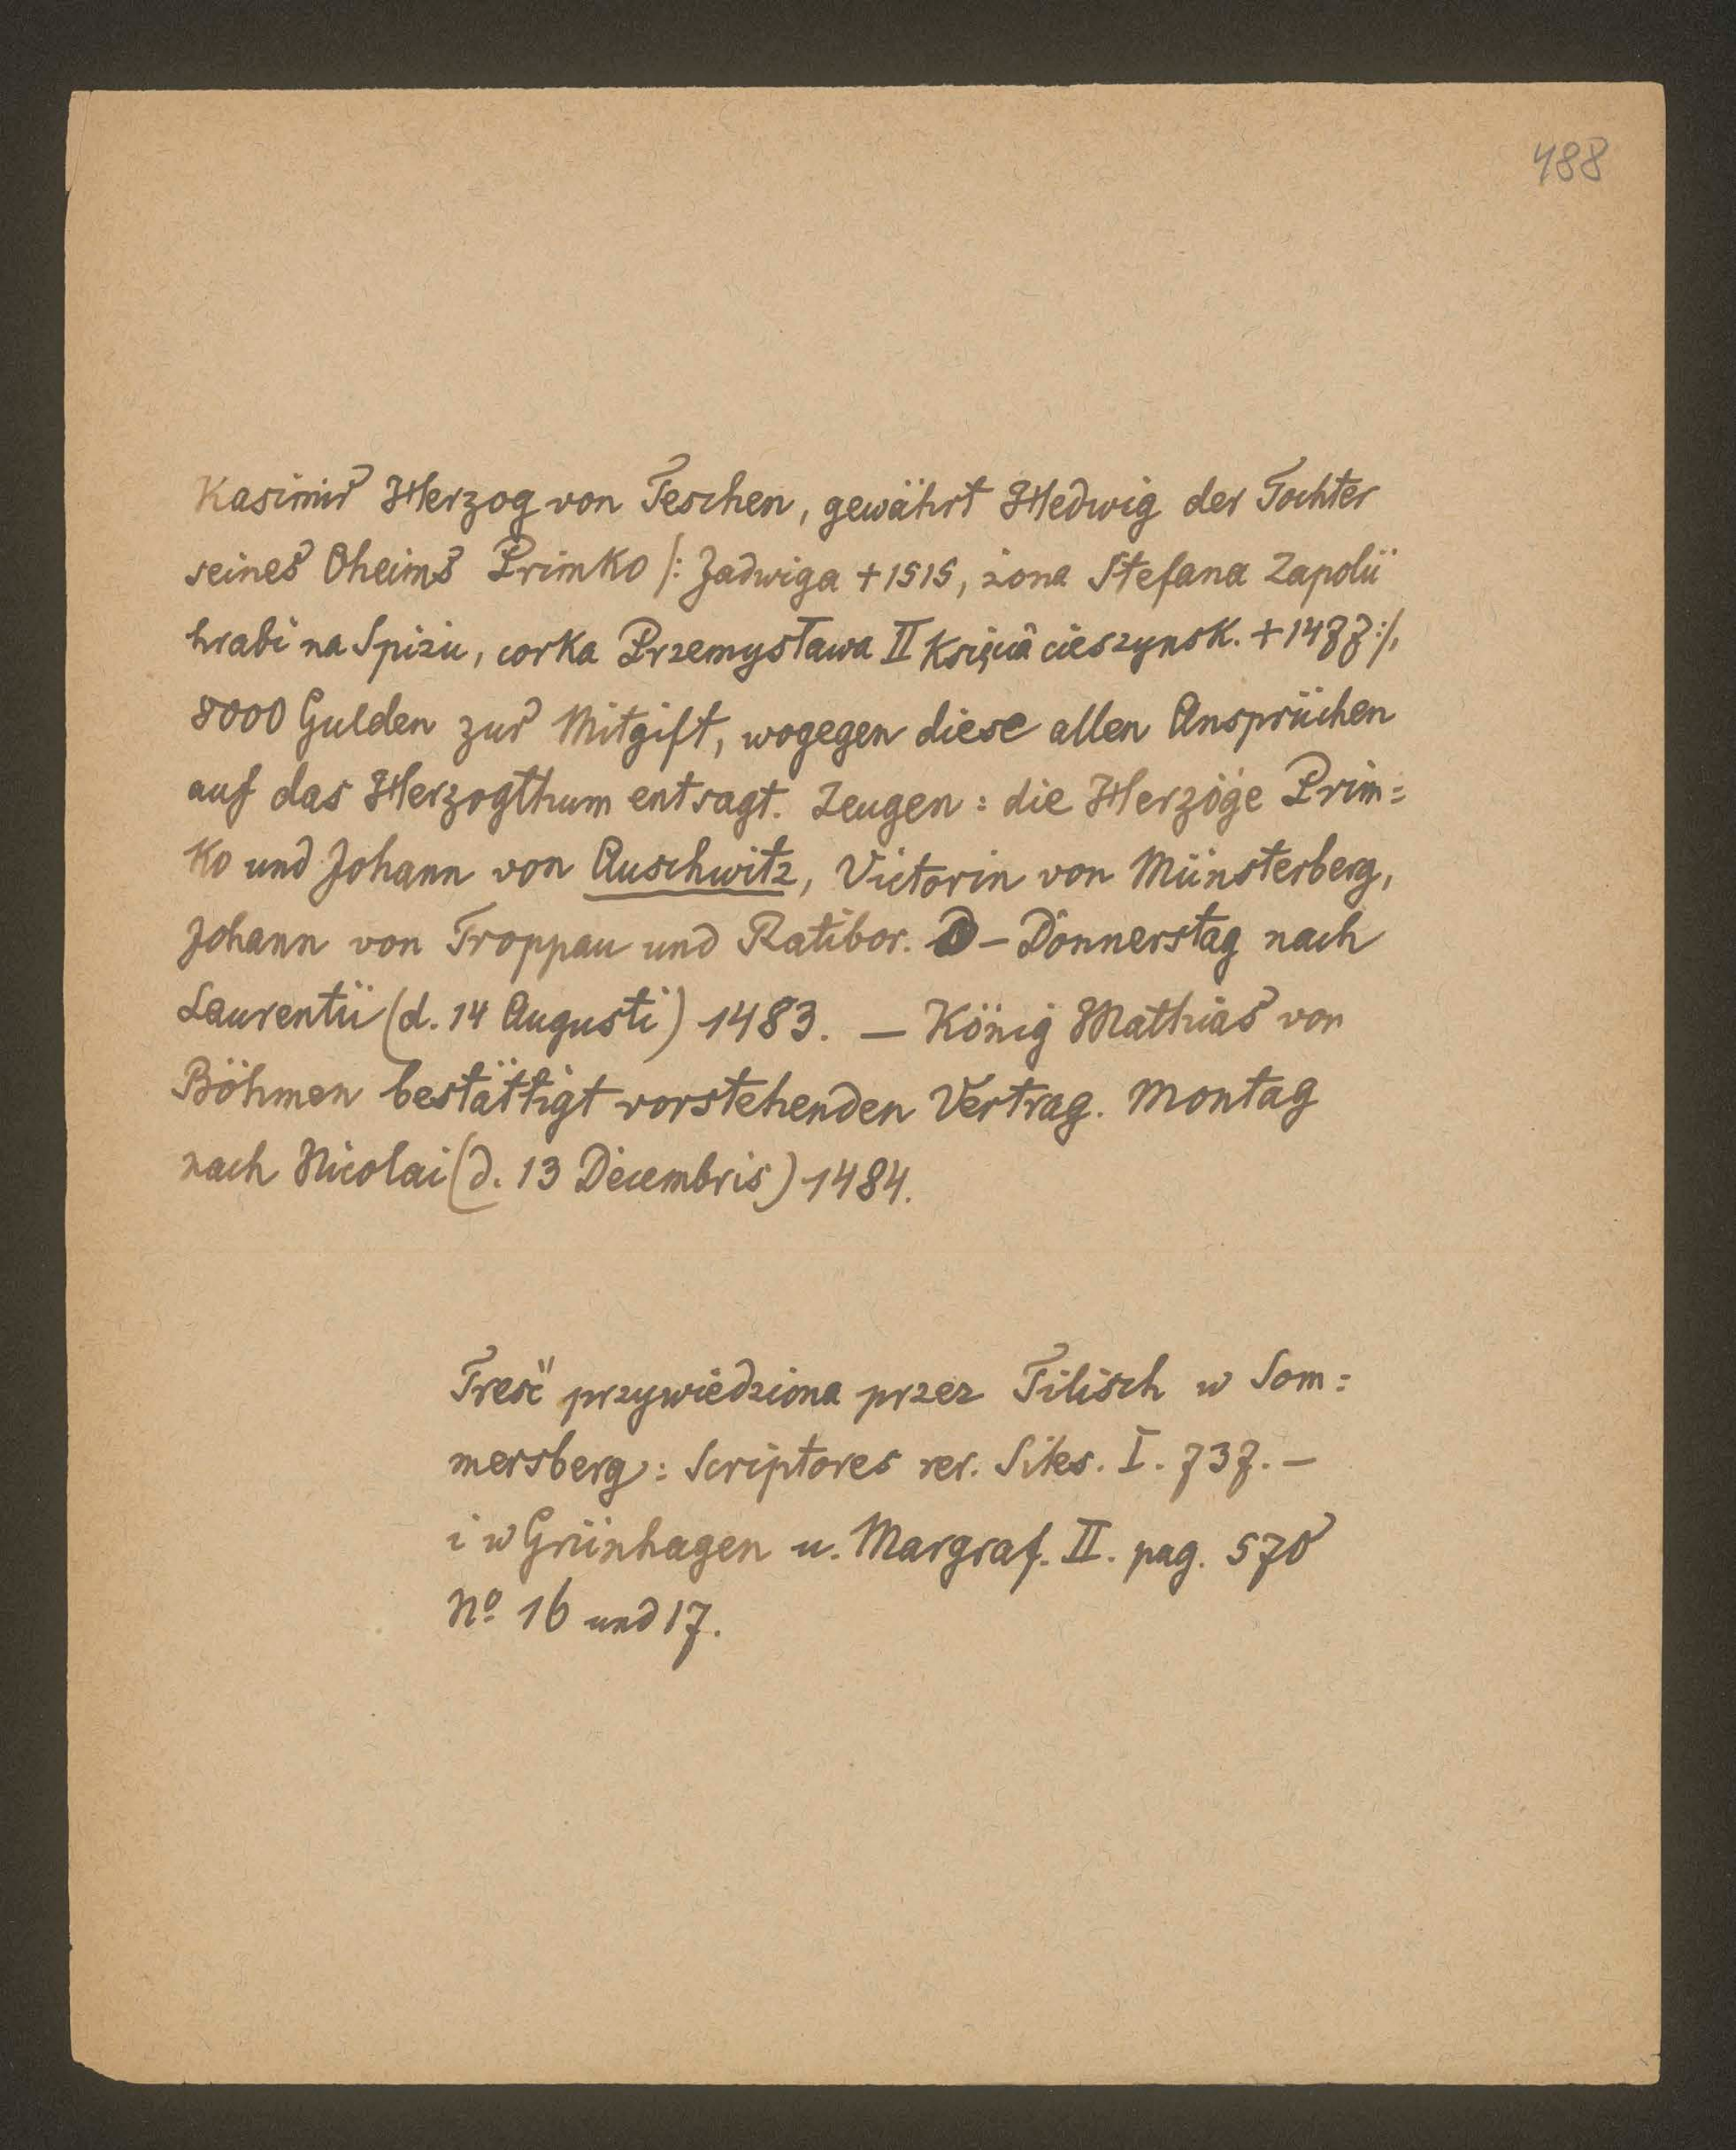 488
Kasimir Herzog von Teschen, gewährt Hedwig der Tochter
seines Oheims Primko /: Jadwiga +1515, żona Stefana Zapolii
hrabi na Spizu, corka Przemysława II Księcia cieszynsk. +1477:/,
8000 Gulden zur Mitgift, wogegen diese allen Ansprüchen
auf das Herzogthum entsagt. Zeugen: die Herzöge Prim=
ko und Johann von Auschwitz, Victorin von Münsterberg,
Johann von Troppau und Ratibor. – Donnerstag nach
Laurentii (d. 14 Augusti) 1483. — König Mathias von
Böhmen bestättigt vorstehenden Vertrag. Montag
nach Nicolai (d. 13 Decembris) 1484.
Treść przywiedziona przez Tilisch w Som=
mersberg: Scriptores rer. Siles. I. 737. –
i w Grünhagen u. Margraf. II. pag. 570
No 16 und 17.